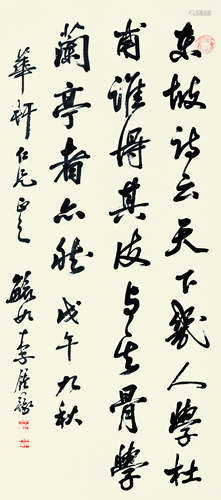 東坡詩云天下幾人學杜
甫誰得其皮與其骨學
蘭亭者亦然 戊午九秋
華軒仁兄正之 李